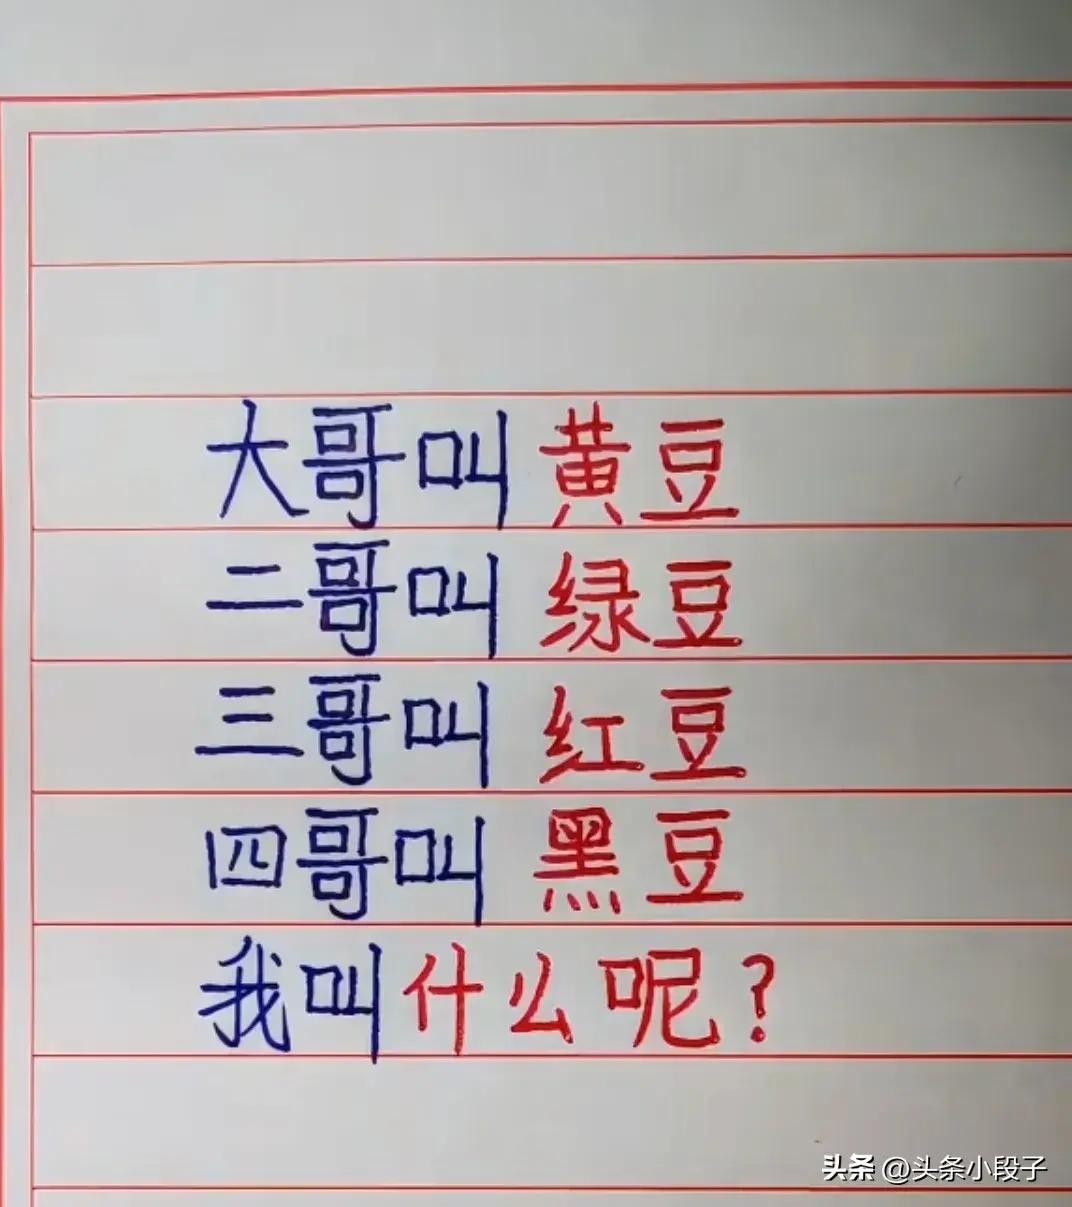 大哥叫黄豆
二哥叫绿豆
三哥叫红豆
四哥叫黑豆
我叫什么呢?
头条 @头条小段子